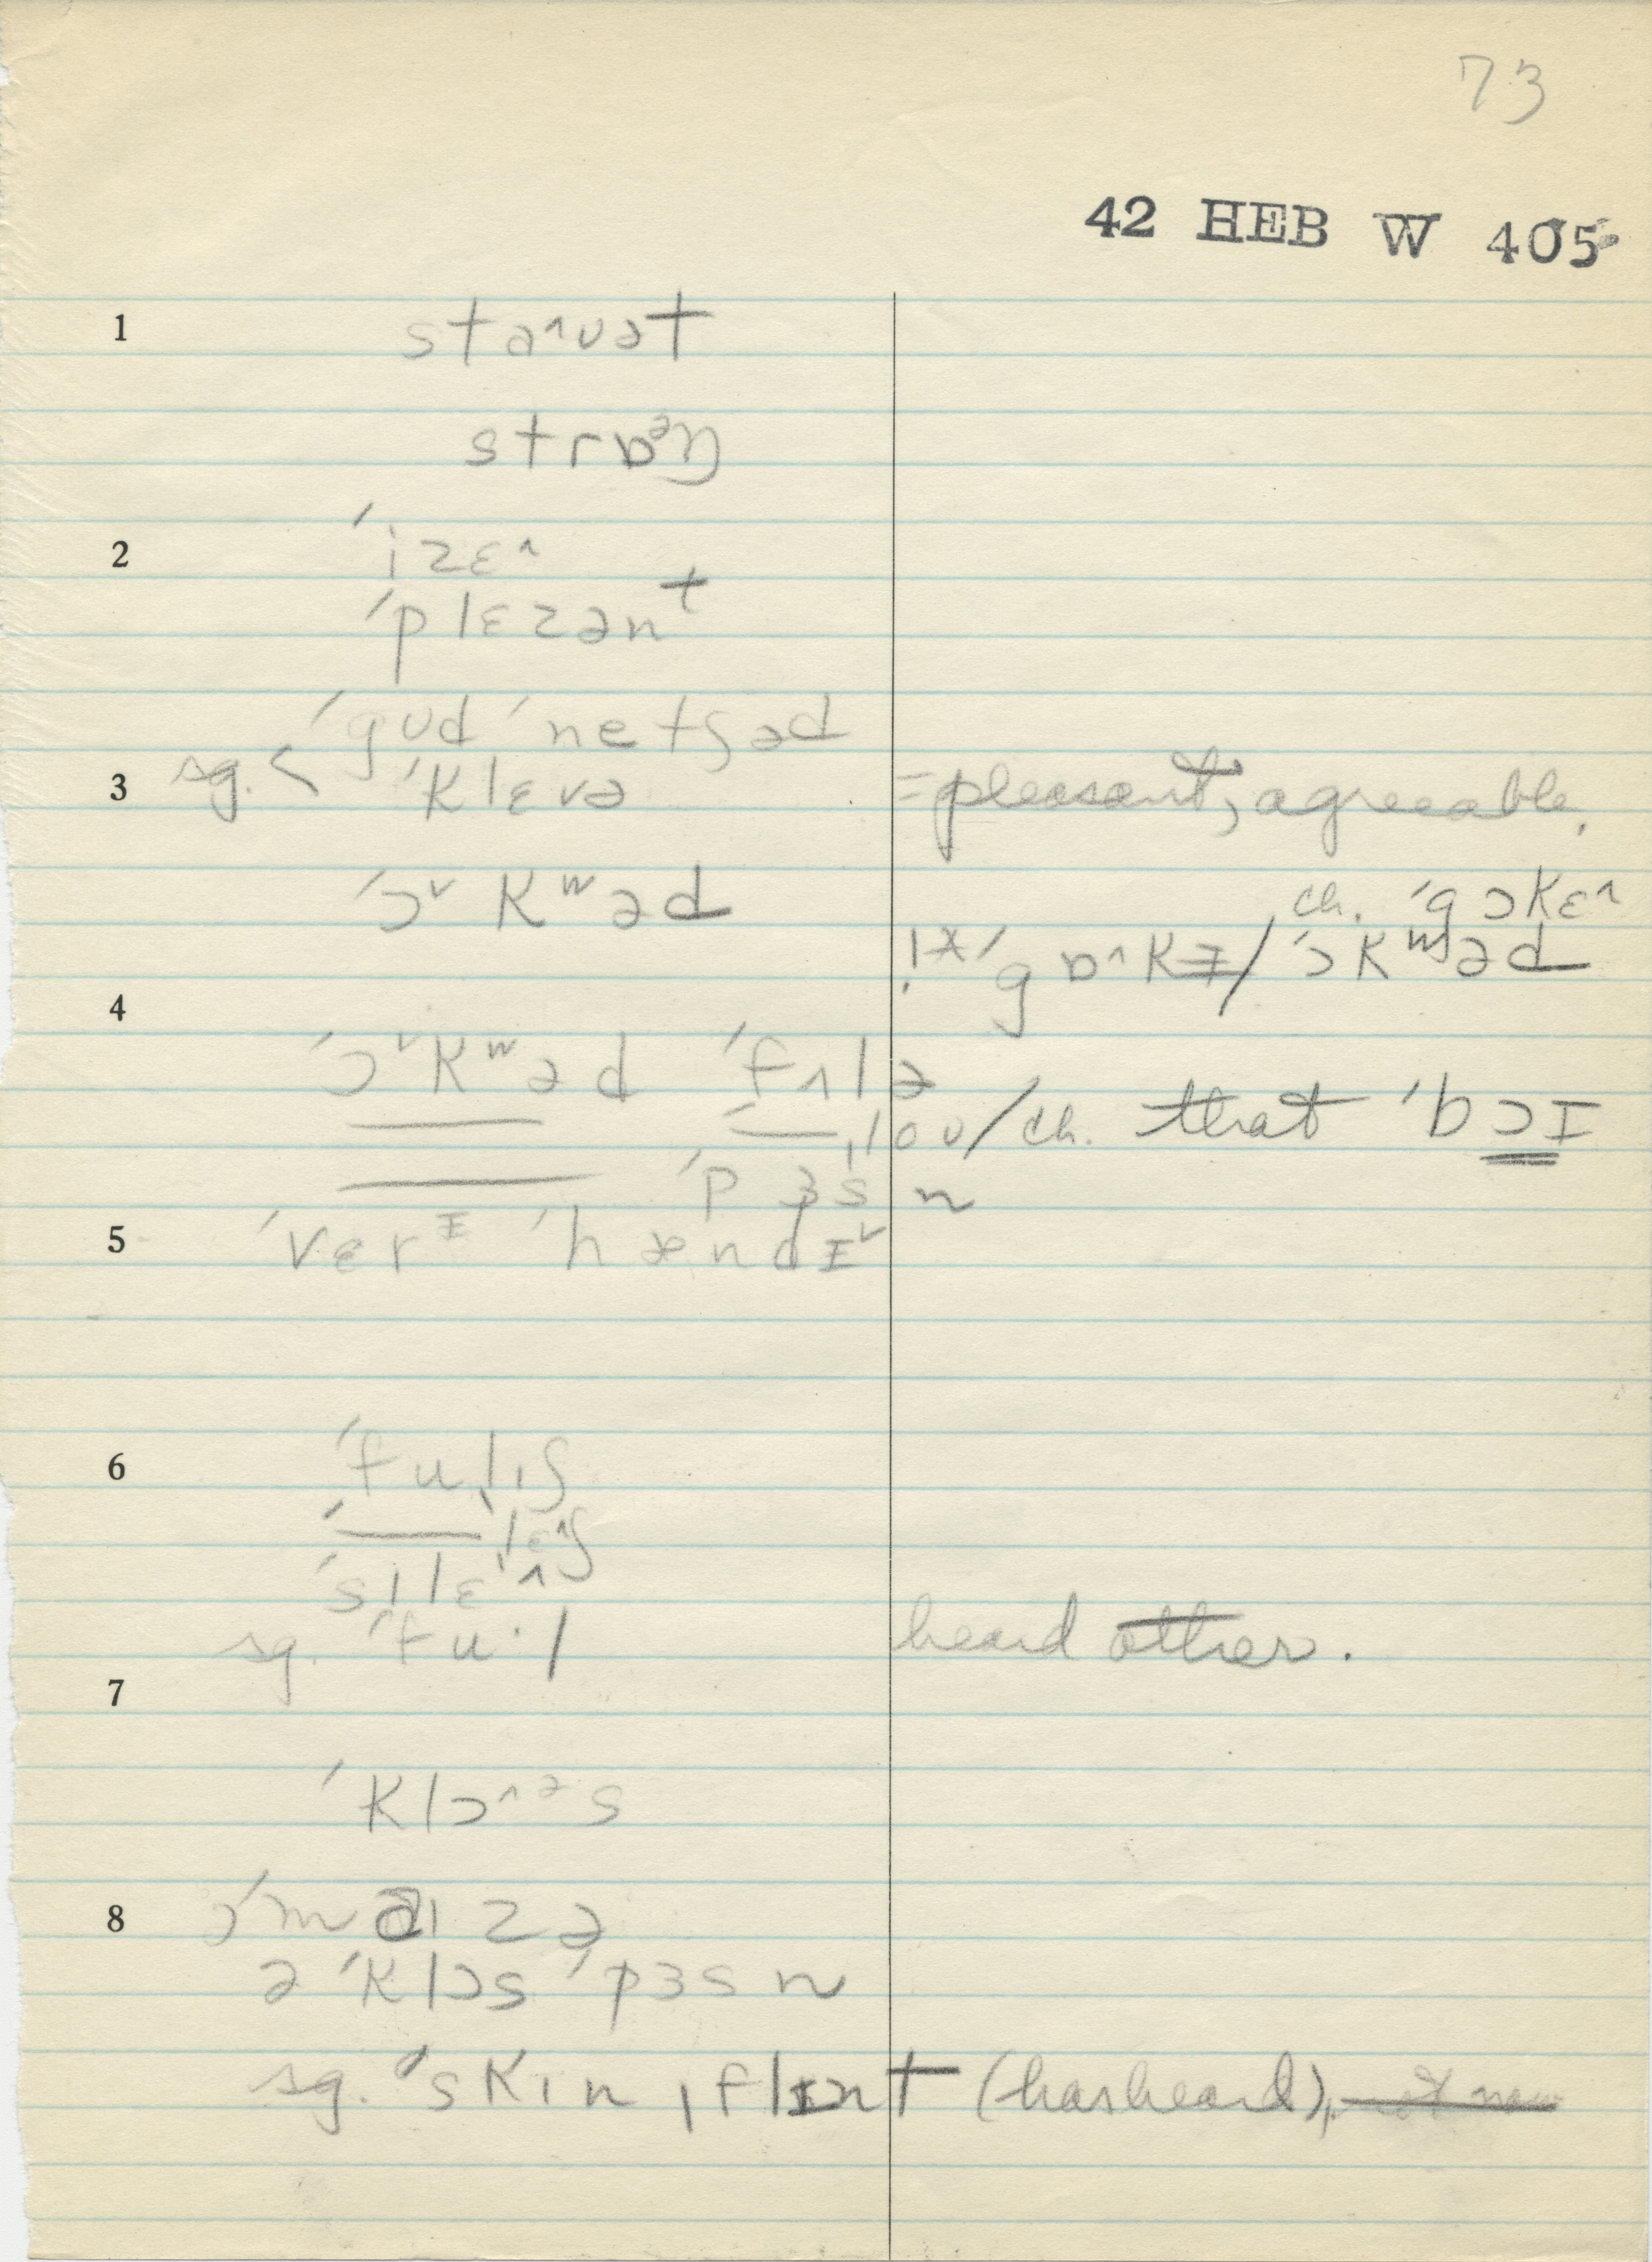 73
42 HEB W 405
1 sta˄vət
strɒᵊŋ
2 ˈizɛ˄
ˈplɛzənt
ˈgud ˈnetʃəd
3 sg. < ˈklɛvə =pleasant, agreeable.
ˈɔ˅kʷəd ch. ˈgɔkɛ˄
ˈgɒ˄kɪ/ˈɔkʷəd
4
ˈɔ˅kʷəd ˈfʌlə
ˌloʊ/ch. that ˈbɔɪ
ˈpɜsn
5 ˈvɛrᶦ ˈhændɪ˅
6 ˈfulˌɪʃ
ˌlɛ˄ʃ
ˈsɪlɛ˄
sg. ˈfu·l heard other.
7
ˈklɔ˄ᵊs
8 ˈmaɪzə
ə ˈklɔs ˈpɜsn
sg. ˈskɪnˌflɪnt (has heard),